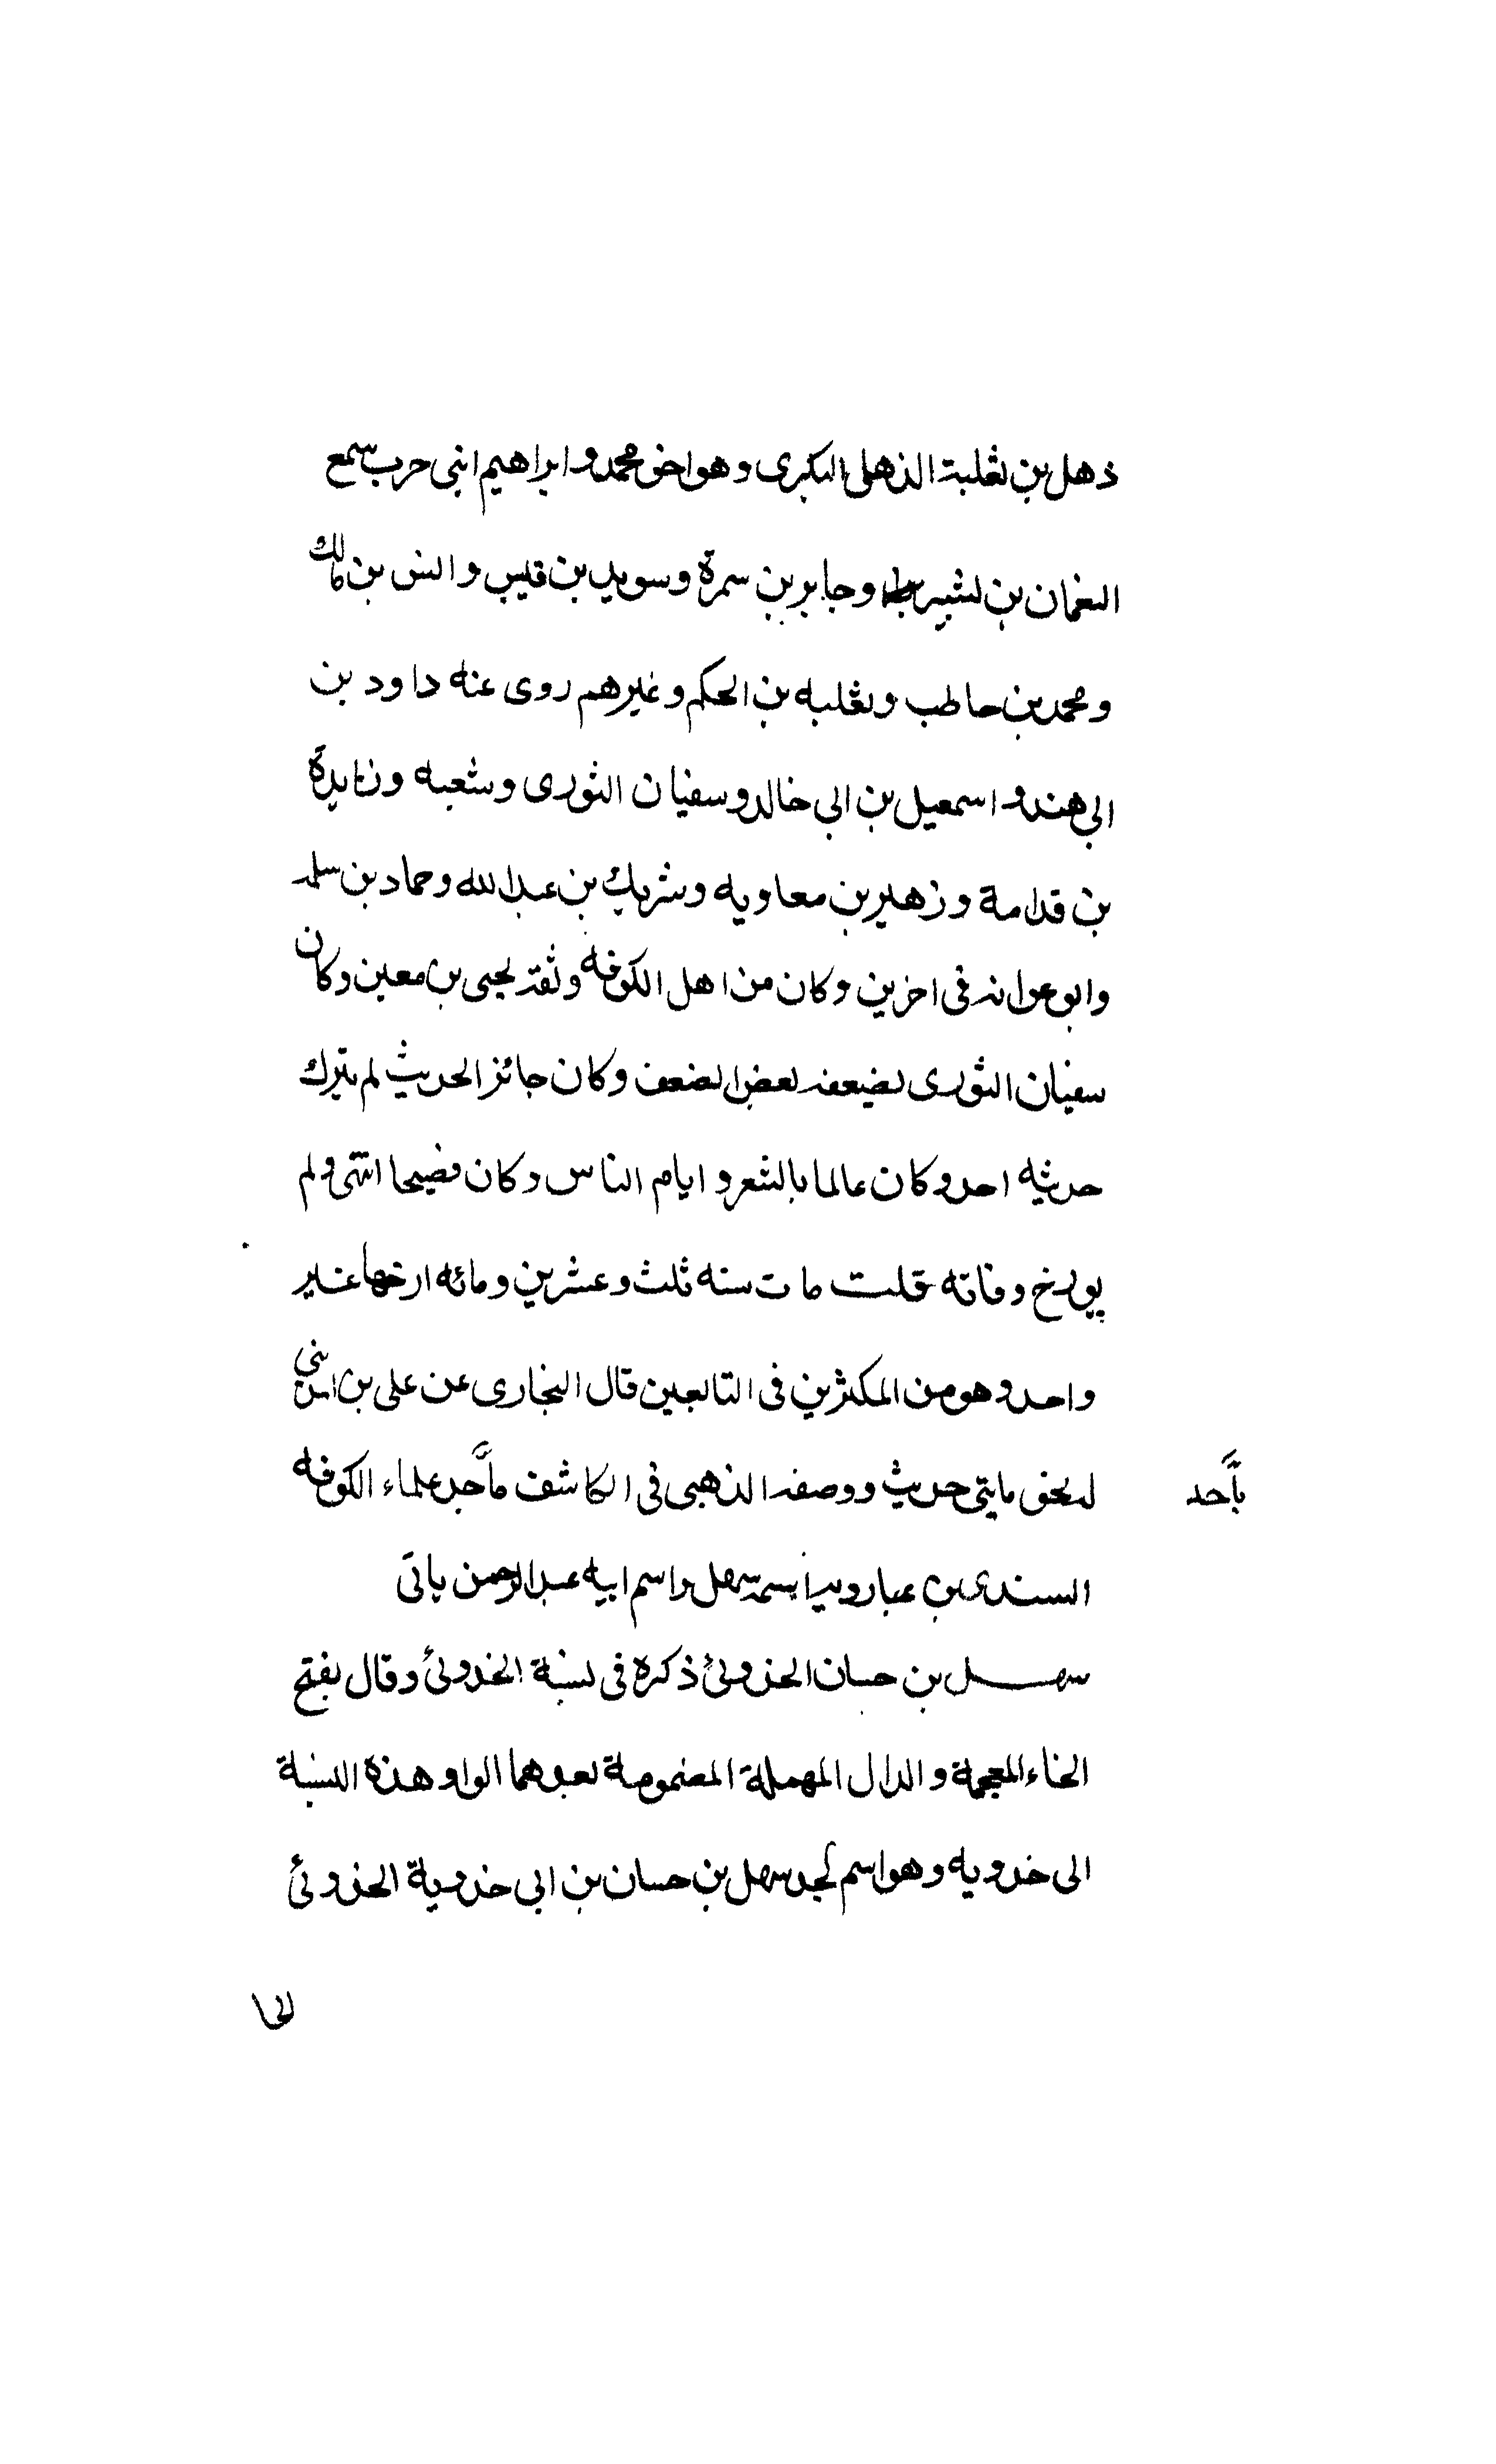 ذهل بن ثعلبة الذهلى البكرى وهو اخو محمد و ابراهيم ابنى حرب سمع
النعمان بن بشير وجابر بن سمرة وسويد بن قيس وانس بن مالك
ومحمد بن حاطب وثعلبه بن الحكم وغيرهم روى عنه داود بن
ابى هند و اسمعيل بن ابى خالد وسفيان الثورى وشعبه وزايدة
بن قدامة وزهير بن معاويه وشريك بن عبد الله وحماد بن سلمه
وابو عوانه فى اخرين وكان من اهل الكوفه وثقه يحيى بن معين وكان
سفيان الثورى يضيعفه بعض الضعف وكان جائز الحديث لم يترك
حديثه احد وكان عالما بالشعر و ايام الناس وكان فصيحا انتهى ولم
يورخ وفاته قلت مات سنه ثلث وعشرين ومائه ارخها غير
واحد وهو من المكثرين فى التابعين قال البخارى عن على بن المدينى
له نحو مايتى حديث ووصفه الذهبى فى الكاشف بأحد علماء الكوفه
بأحد
السندى بن اسمه سهل واسم ابيه عبد الرحمن ياتى
سهل بن حسان الخدوئى ذكره فى نسبة الخدوئى وقال بفتح
الخاء المعجمة والدال المهملة المضمومة بعدهما الواو هذه النسبة
الى خدويه وهو اسم لجد سهل بن حسان بن ابى خدوية الخدوئى